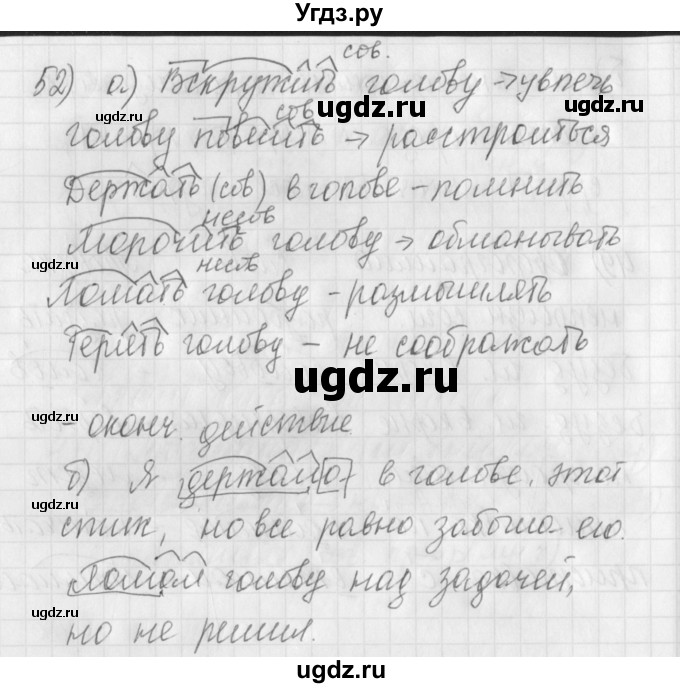 Угдз.ру
сов.
52) а) Вскружить голову → увлечь
сов
голову повесить → расстроиться
Держать (сов) в голове - помнить
несов
Морочить голову → обманывать
несов
Ломать голову - размышлять
Терять голову - не соображать
- оконч. действие
б) Я держала в голове этот
стих, но все равно забыла его.
Ломал голову над задачей,
но не решил.
ugdz.ru
ugdz.ru
ugdz.ru
ugdz.ru
ugdz.ru
ugdz.ru
ugdz.ru
ugdz.ru
ugdz.ru
ugdz.ru
ugdz.ru
ugdz.ru
ugdz.ru